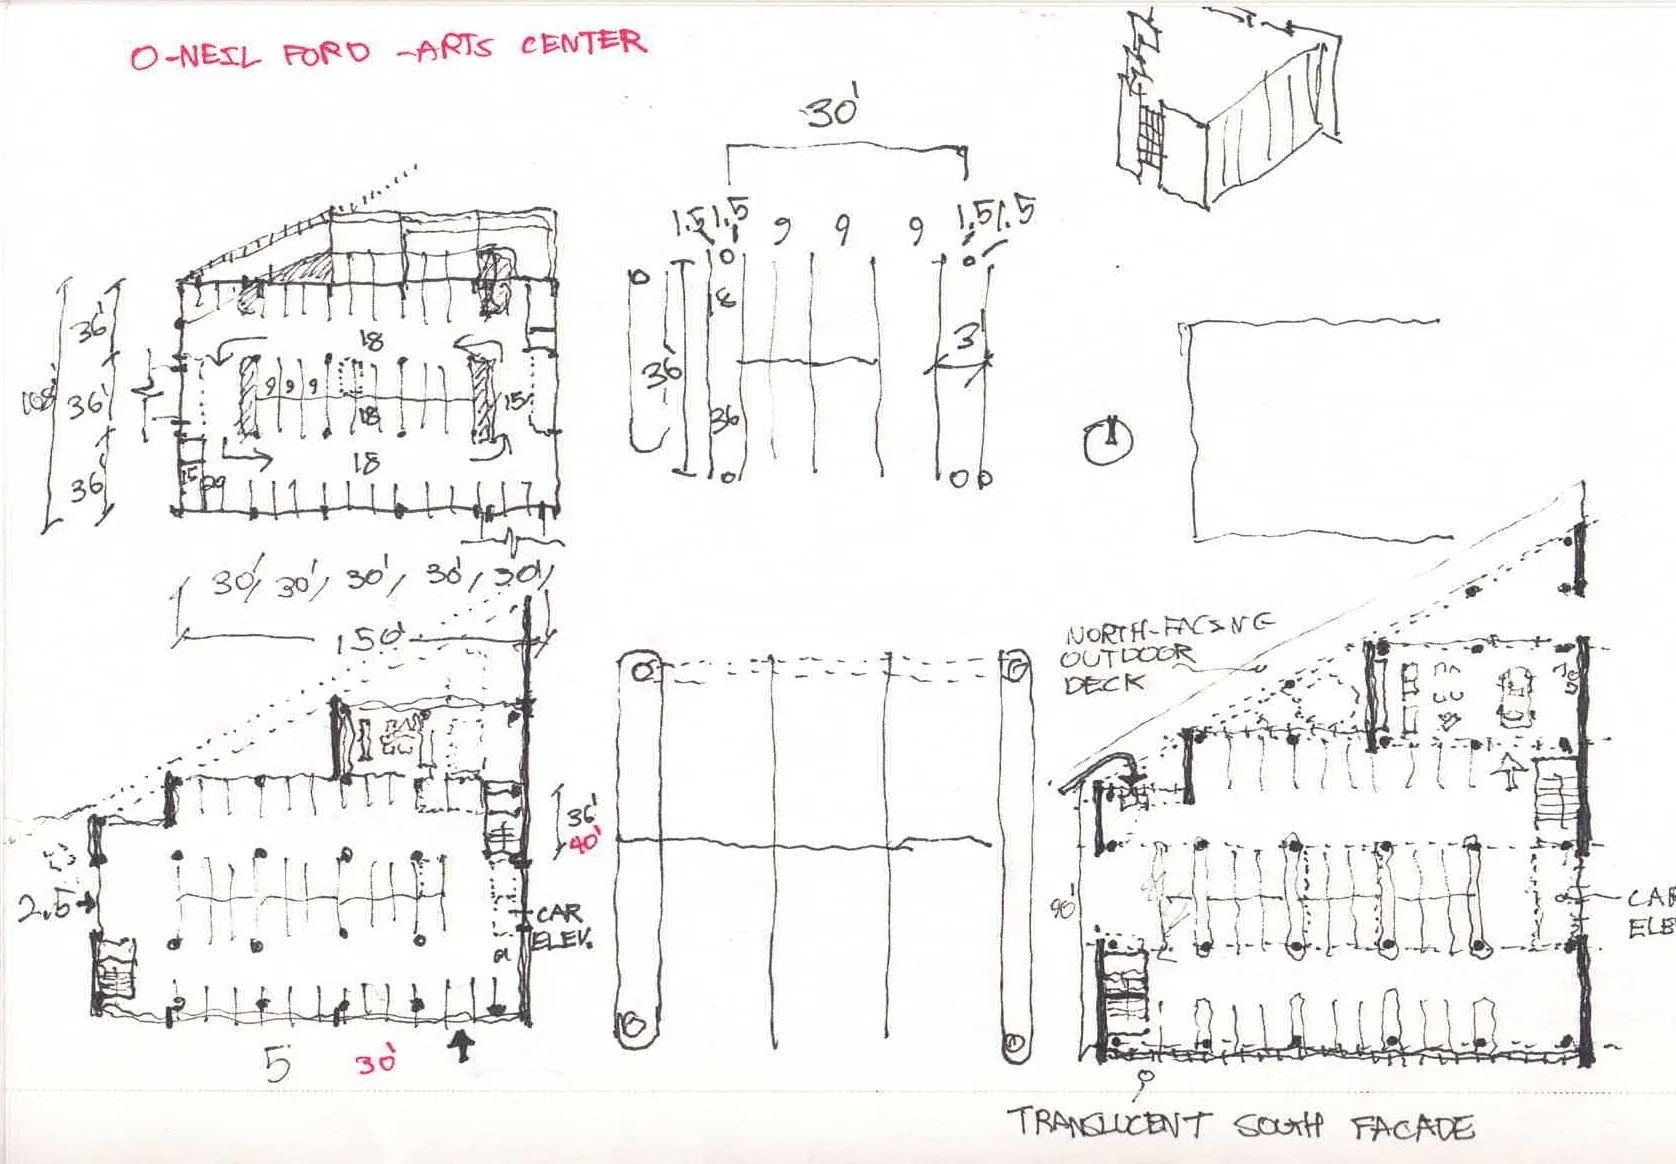 O-NEIL FORD -ARTS CENTER
30'
1.5 1.5 9 9 9 1.5 1.5
3
36
36'
3'
36'
36'
36'
108'
18
9 9 9
18
15
18
15
30' 30' 30' 30' 30'
150'
NORTH-FACING
OUTDOOR
DECK
36'
40'
2.5
CAR
ELEV.
5
30'
90'
CAR
ELE
TRANSLUCENT SOUTH FACADE